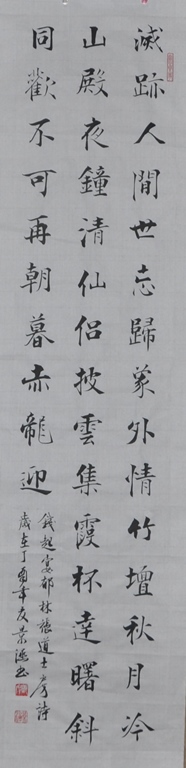 滅跡人間世忘歸象外情竹壇秋月冷
山殿夜鐘清仙侶披雲集霞杯達曙斜
同歡不可再朝暮赤龍迎
錢起宴郁林觀道士房詩
歲在丁酉年友葉